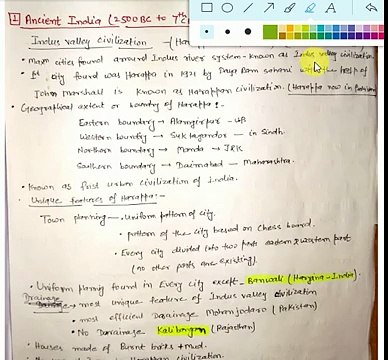 1 Ancient India (2500 BC to 7th
Indus valley civilization - (Har
• Major cities found around Indus river system - known as Indus valley civilization.
• 1st city found was Harappa in 1921 by Daya Ram Sahani with the help of
John Marshall is known as Harappan civilization. (Harappa now in Pakistan
• Geographical extent or boundry of Harappa :-
Eastern boundary → Alamgirpur - UP
Western boundry → Suktagendor - in Sindh
Northern boundary → Manda → J&K
Southern boundary → Daimabad - Maharashtra.
• Known as first urban civilization of India.
• Unique features of Harappa :-
Town planning — • Uniform pattern of city.
• pattern of the city based on Chess board.
• Every city divided into two parts eastern & western part
(no other parts are existing).
• Uniform planning found in Every city except - Banwali (Haryana - India)
Drainage → most unique feature of Indus valley civilization
• most efficient Darainage Mohenjodaro (Pakistan)
• No Darainage Kalibangan (Rajasthan)
• Houses made of Burnt bricks + mud.
civilization.